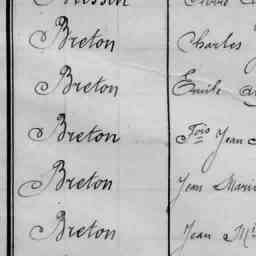 Breton Charles
Breton Emile
Breton Fois Jean
Breton Jean Marie
Breton Jean M